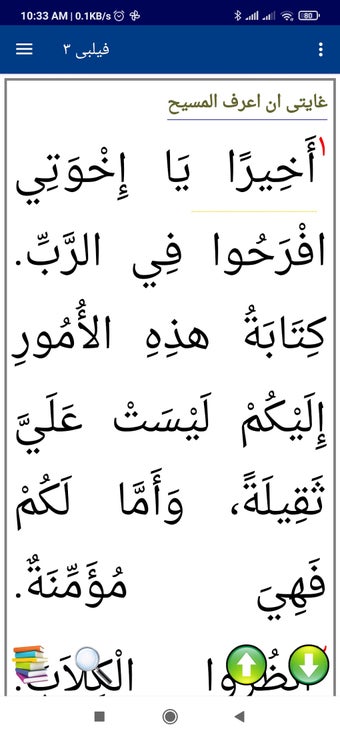 10:33 AM | 0.1KB/s
80
فيلبى ٣
غايتى ان اعرف المسيح
١ أَخِيرًا يَا إِخْوَتِي
افْرَحُوا فِي الرَّبِّ.
كِتَابَةُ هذِهِ الأُمُورِ
إِلَيْكُمْ لَيْسَتْ عَلَيَّ
ثَقِيلَةً، وَأَمَّا لَكُمْ
فَهِيَ مُؤَمِّنَةٌ.
اُنْظُرُوا الْكِلاَبَ.